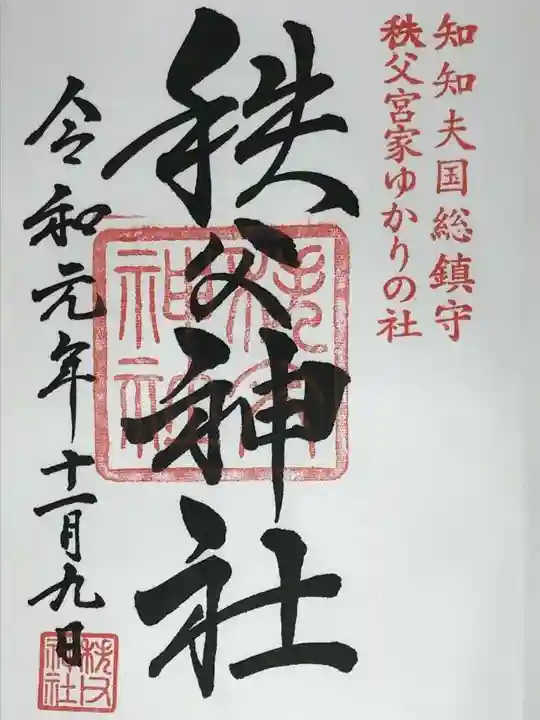 知知夫国総鎮守
秩父宮家ゆかりの社
秩父神社
令和元年十一月九日
秩父神社
秩父神社